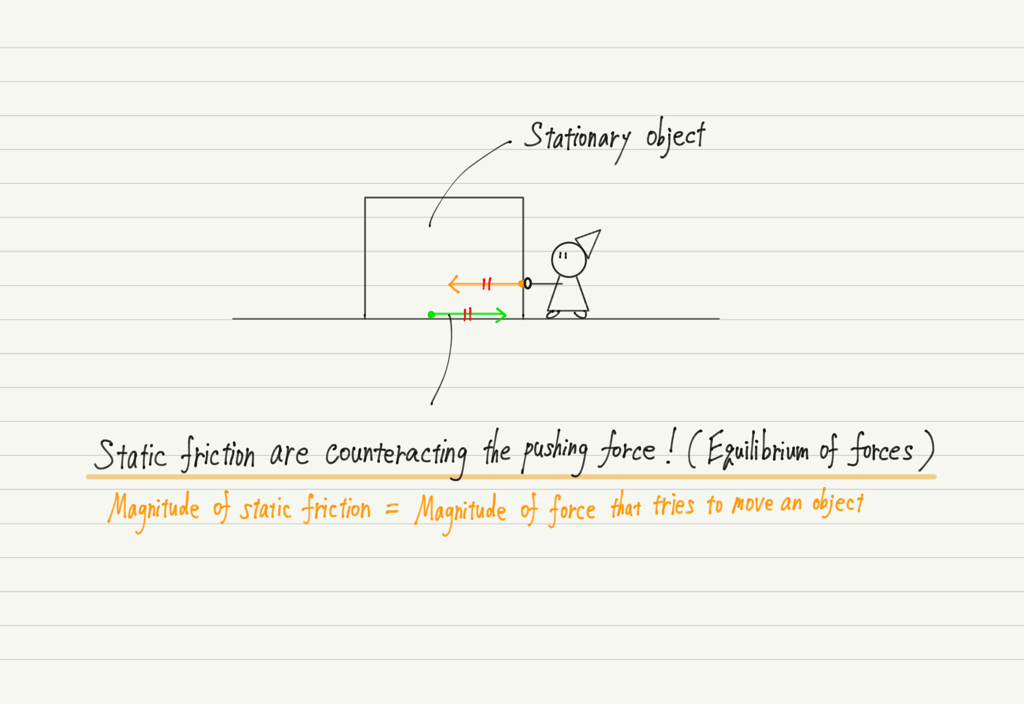 Stationary object
Static friction are counteracting the pushing force! (Equilibrium of forces)
Magnitude of static friction = Magnitude of force that tries to move an object